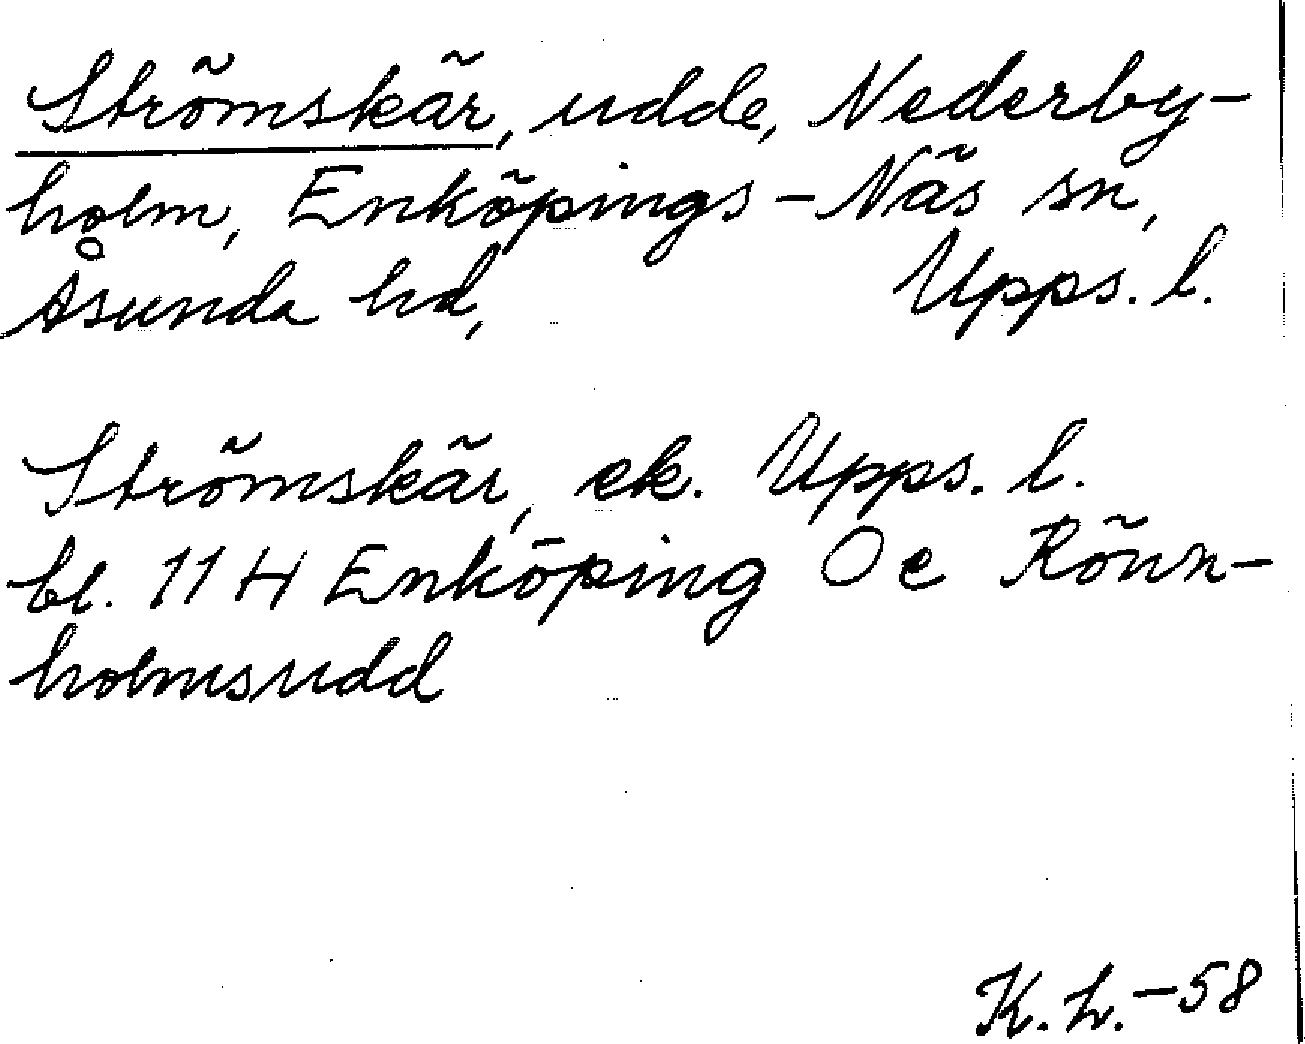 Strömskär, udde, Nederby-
holm, Enköpings-Näs sn,
Åsunda hd, Upps. l.
Strömskär, ek. Upps. l.
bl. 11 H Enköping Oe Rönn-
holmsudd
K. h. -58